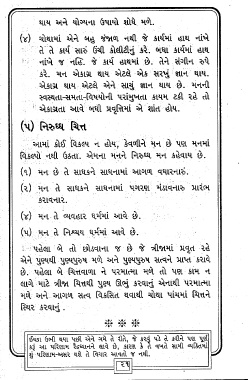 થાય અને યોગ્યના ઉપાયો શોધે મળે.
(૪) ચોથામાં એને બહુ જંજાળ નથી જે કાર્યમાં હાથ નાંખે
તે તે કાર્ય સારું ઉંચી કોલીટીનું કરે. બધા કાર્યમાં હાથ
નાંખે જ નહિ. જે કાર્ય હાથમાં છે. તેને સંગીન રુપે
કરે. મન એકાગ્ર થાય એટલે એક સરખું જ્ઞાન થાય.
એકાગ્ર થાય એટલે એને સાચું જ્ઞાન થાય છે. મનની
સ્વસ્થતા-સમતા-વિષયોની પરાંમુખતા કાયમ ટકી રહે તો
એકાગ્રતા આવે બધી પ્રવૃત્તિમાં એ શાંત હોય.
(૫) નિરુધ્ધ ચિત્ત
આમાં કોઈ વિકલ્પ ન હોય, કેવળીને મન છે પણ મનમાં
વિકલ્પો નથી ઉઠતા. એમના મનને નિરુધ્ધ મન કહેવાય છે.
(૧) મન છે તે સાધકને સાધનામાં આગળ વધારનારું.
(૨) મન તે સાધકને સાધનામાં પગરણ મંડાવનારુ પ્રારંભ
કરાવનાર.
(૪) મન તે વ્યવહાર ધર્મમાં આવે છે.
(૫) મન તે નિશ્ચય ધર્મમાં આવે છે.
પહેલા બે તો છોડવાના જ છે જે ત્રીજામાં પ્રવૃત રહે
એને પુણ્યથી પુણ્યપુરુષ મળે અને પુણ્યપુરુષ સત્વને પ્રાપ્ત કરાવે
છે. પહેલા બે ચિત્તવાળા ને પરમાત્મા મળે તો પણ કામ ન
લાગે માટે ત્રીજા ચિત્તથી પુણ્ય ઊભું કરવાનું એનાથી પરમાત્મા
મળે અને આગળ સત્વ વિકસિત થવાથી ચોથા પાંચમાં ચિત્તને
સ્થિર કરવાનું.
ઈચ્છા ઉભી થયા પછી એને ગમે તે રીતે, જે કરવું પડે તે કરીને પણ પૂર્ણ
કરૂં આ પરિણામ રૌદ્રધ્યાનને લાવે છે, કારણ કે તે વખતે સામી વ્યક્તિમાં
શું પરિણામ-અસર થશે તે વિચાર આવતો જ નથી.
૨૧